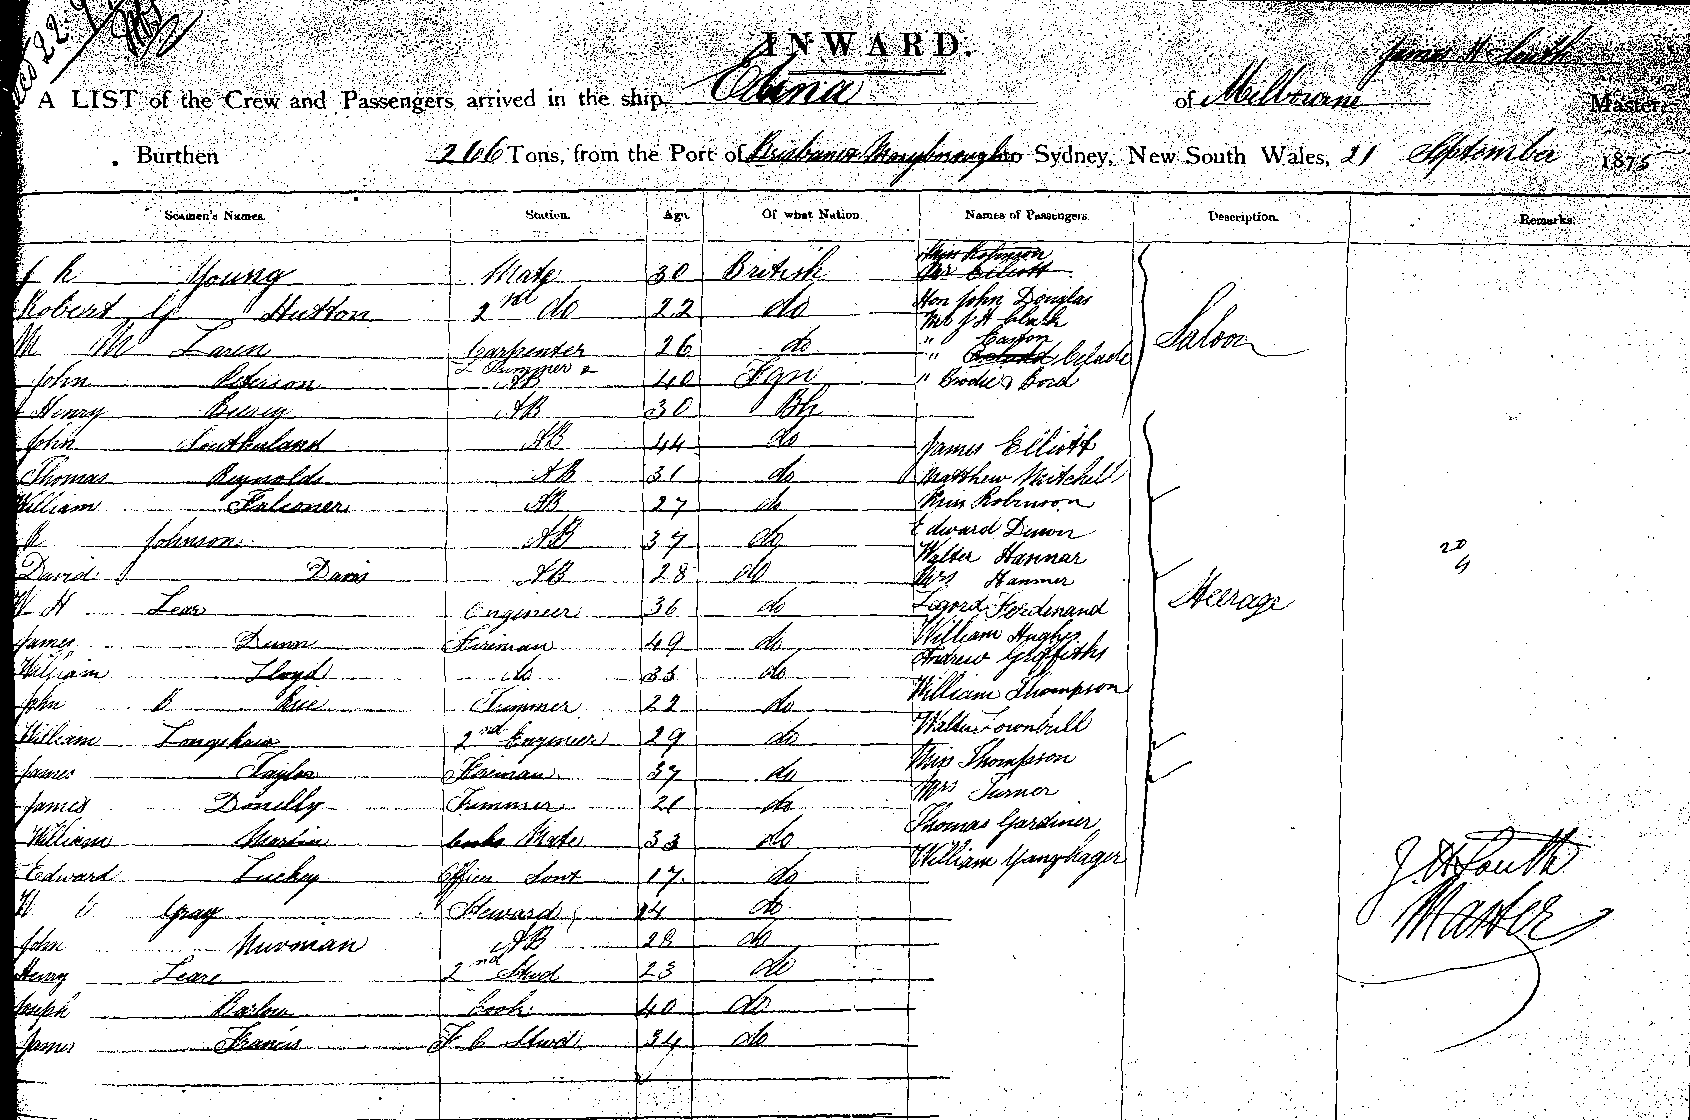 INWARD.
A LIST of the Crew and Passengers arrived in the ship Edina of Melbourne James H South Master
Burthen 266 Tons, from the Port of Brisbane & Maryborough to Sydney, New South Wales, 21 September 1875
Seamen's Names. Station. Age. Of what Nation. Names of Passengers. Description. Remarks.
Miss Robinson
Young Mate 30 British Mr Elliott
Robert G Hutton 2nd do 22 do Hon John Douglas
Mr J H Clark
M Mc Laren Carpenter 26 do " Saloon
" Clack
John Peterson AB 40 Fgn " Brodie & Bord
Henry AB 30 Bh
John Southerland AB 44 do James Elliott
Thomas Reynolds AB 31 do Matthew Mitchell
William Falconer AB 27 do Miss Robinson
Johnson AB 37 do Edward
Walter Hannar
David J Davis AB 28 do Mrs Hanmer
W H Lear Engineer 36 do Ferdinand Steerage
James Dunn Fireman 49 do William Hughes
Andrew Griffiths
William Lloyd do 33 do
John B Trimmer 22 do William Thompson
William 2nd Engineer 29 do Walter Townbull
James Taylor Fireman 37 do Miss Thompson
James Donelly Trimmer 21 do Mrs Turner
William Martin Cooks Mate 33 do Thomas Gardiner
Edward Luckey 17 do William
J. H South
W C Gray Steward 24 do Master
John AB 28 do
Henry Leare 2nd Stwd 23 do
Joseph Barlow Cook 40 do
James Francis F C Stwd 34 do